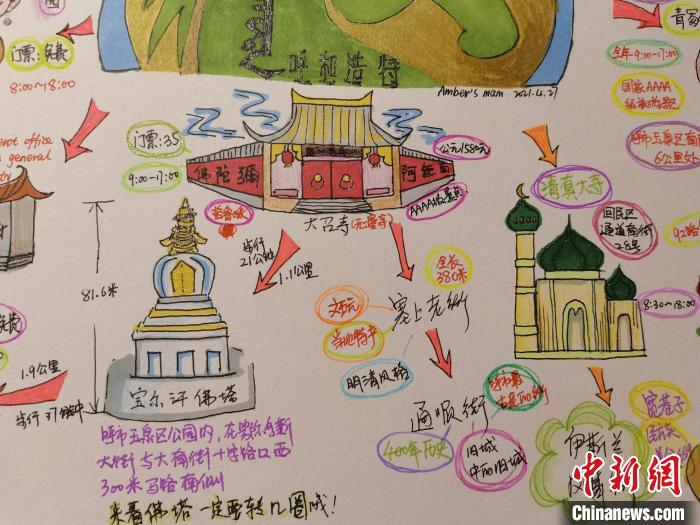 呼和浩特
Amber's mam 2021.4.21
门票:免费
8:00～18:00
ent office
general
门票:35
9:00-17:00
佛陀弥
阿無南
公元1580年
AAAA级景点
大召寺(无量寺)
步行
21分钟
1.1公里
全长
380米
塞上老街
文玩
当地特产
明清风格
通顺街
400年历史
旧城
中的旧城
81.6米
宝尔汗佛塔
1.9公里
步行37分钟
呼市玉泉区公园内,在
大街与大南街十字路口西
300米马路南侧
来看佛塔一定要转几圈哦!
青冢
全年9:00-17:00
国家AAAA
级旅游景区
呼市玉泉区南
6公里处
清真大寺
回民区
通道南街
28号
8:30-18:3
宽巷子
伊斯兰
中新网
Chinanews.com